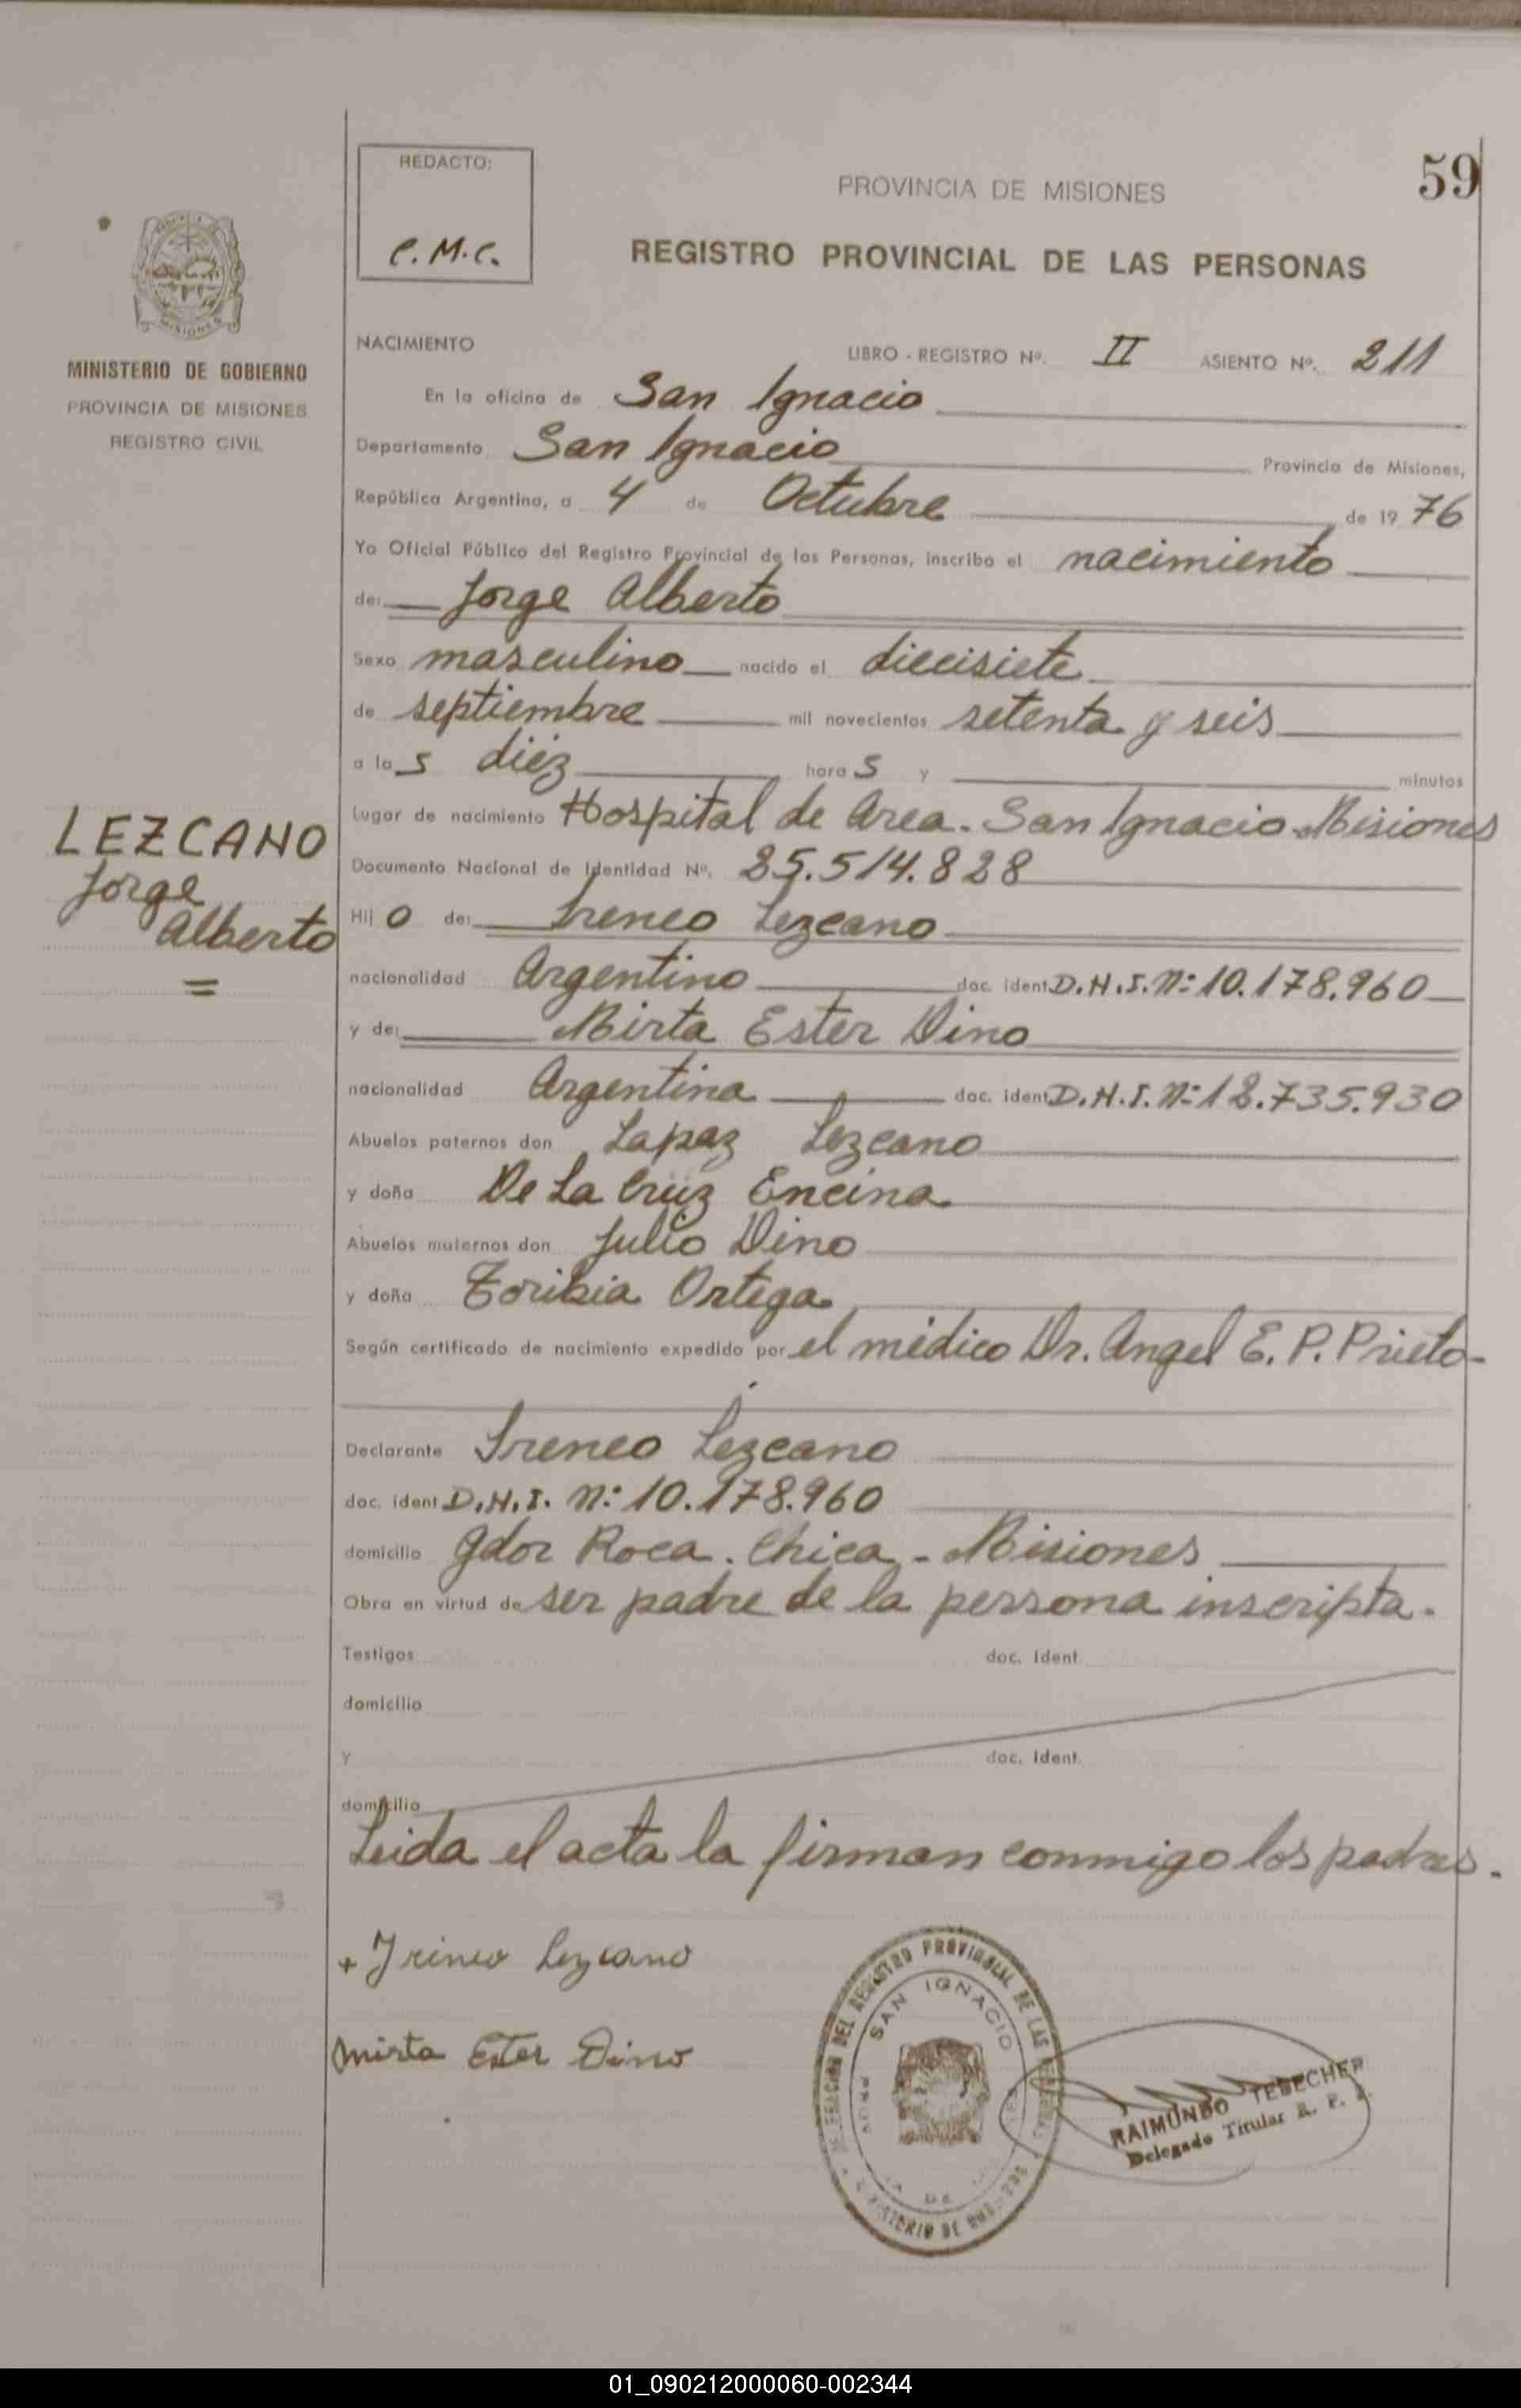 59
REDACTO:
C. M. C.
PROVINCIA DE MISIONES
REGISTRO PROVINCIAL DE LAS PERSONAS
MISIONES
MINISTERIO DE GOBIERNO
PROVINCIA DE MISIONES
REGISTRO CIVIL
NACIMIENTO LIBRO - REGISTRO Nº. II ASIENTO Nº. 211
En la oficina de San Ignacio
Departamento San Ignacio Provincia de Misiones,
República Argentina, a 4 de Octubre de 1976
Yo Oficial Público del Registro Provincial de las Personas, inscribo el nacimiento
de: Jorge Alberto
Sexo masculino nacido el diecisiete
de septiembre mil novecientos setenta y seis
a las diéz horas y minutos
Lugar de nacimiento Hospital de Area. San Ignacio Misiones
LEZCANO
Jorge
Alberto
=
Documento Nacional de Identidad Nº. 25.514.828
Hijo de: Ireneo Lezcano
nacionalidad Argentino doc. ident D.N.I. Nº: 10.178.960
y de: Mirta Ester Dino
nacionalidad Argentina doc. ident D.N.I. Nº 12.735.930
Abuelos paternos don Lapaz Lezcano
y doña De La Cruz Encina
Abuelos maternos don Julio Dino
y doña Toribia Ortega
Según certificado de nacimiento expedido por el médico Dr. Angel E. P. Prieto-
Declarante Ireneo Lezcano
doc. ident D.N.I. Nº: 10.178.960
domicilio Gdor Roca. Chica - Misiones
Obra en virtud de ser padre de la persona inscripta.
Testigos doc. ident.
domicilio
y doc. ident.
domicilio
Leida el acta la firman conmigo los padres.
+ Irineo Lezcano
Mirta Ester Dino
DELEGACION DEL REGISTRO PROVINCIAL DE LAS PERSONAS
SAN IGNACIO
RAIMUNDO TEBECHER
Delegado Titular R. P. P.
01_090212000060-002344